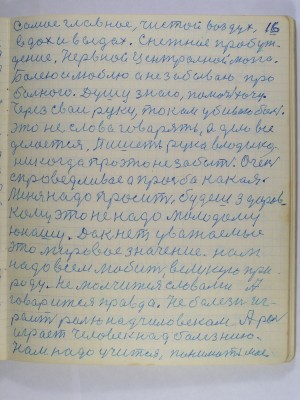 самое главное, чистой воздух, 16
вдох и выдох. Снежное пробуж-
дение, Нервной Централной мозга.
Болею и люблю а не забываю про
болного. Душу знаю, помогаю
Через свои руки, током убиваю бол.
это не слова говарять, а дело все
делается, Пишеть рука владыка
никогда про это не забыть. Очен
справедливае а просба какая.
Меня надо просить, будеш здоров.
Кому это не надо молодому
юнашу. Дак нет уважаемые
это мировое значение. нам
надо всем любить, великую при-
роду. Не молчится словами А
говорится правда. Не болезн иг-
раить роль над человекам А рол
играет человек над болезнию.
Нам надо учится, понимать как